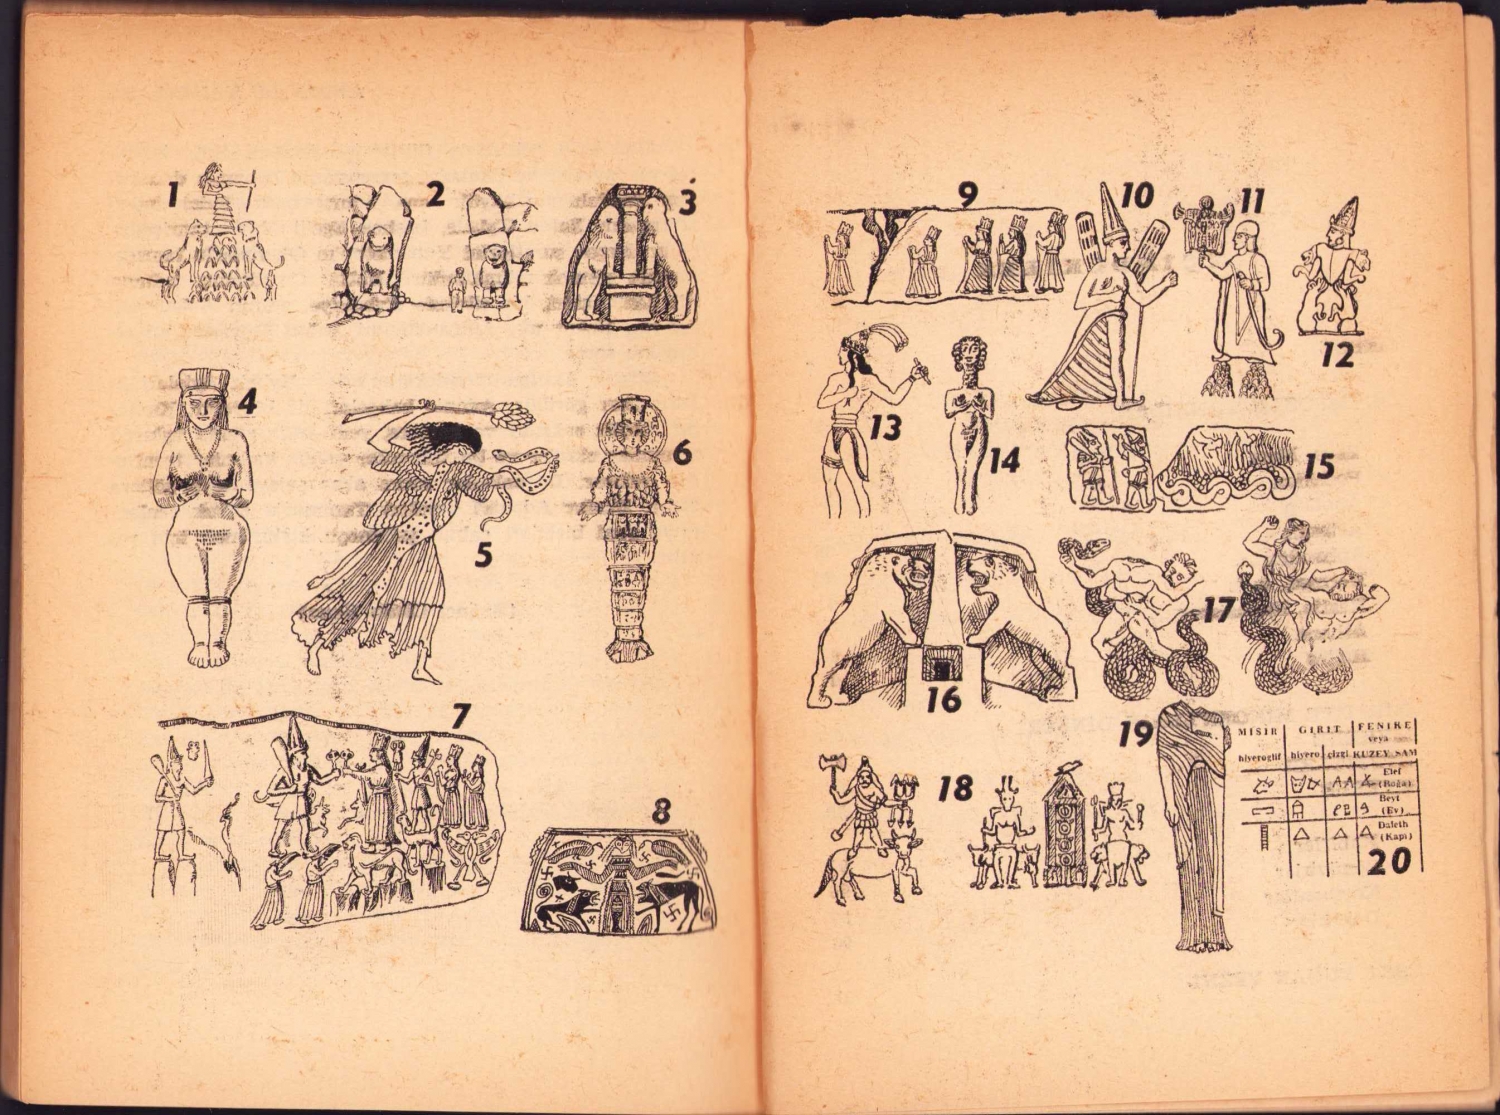 1
2
3
4
5
6
7
8
9
10
11
12
13
14
15
16
17
18
19
MISIR GIRIT FENIKE
veya
hiyeroglif hiyero çizgi KUZEY SAM
Elef
(Boğa)
Beyt
(Ev)
Daleth
(Kapı)
20